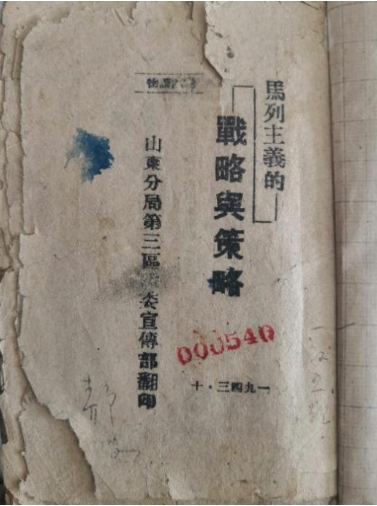 馬列主義的
戰略與策略
物
山東分局第三區
委宣傳部翻印
000540
一九四三・十